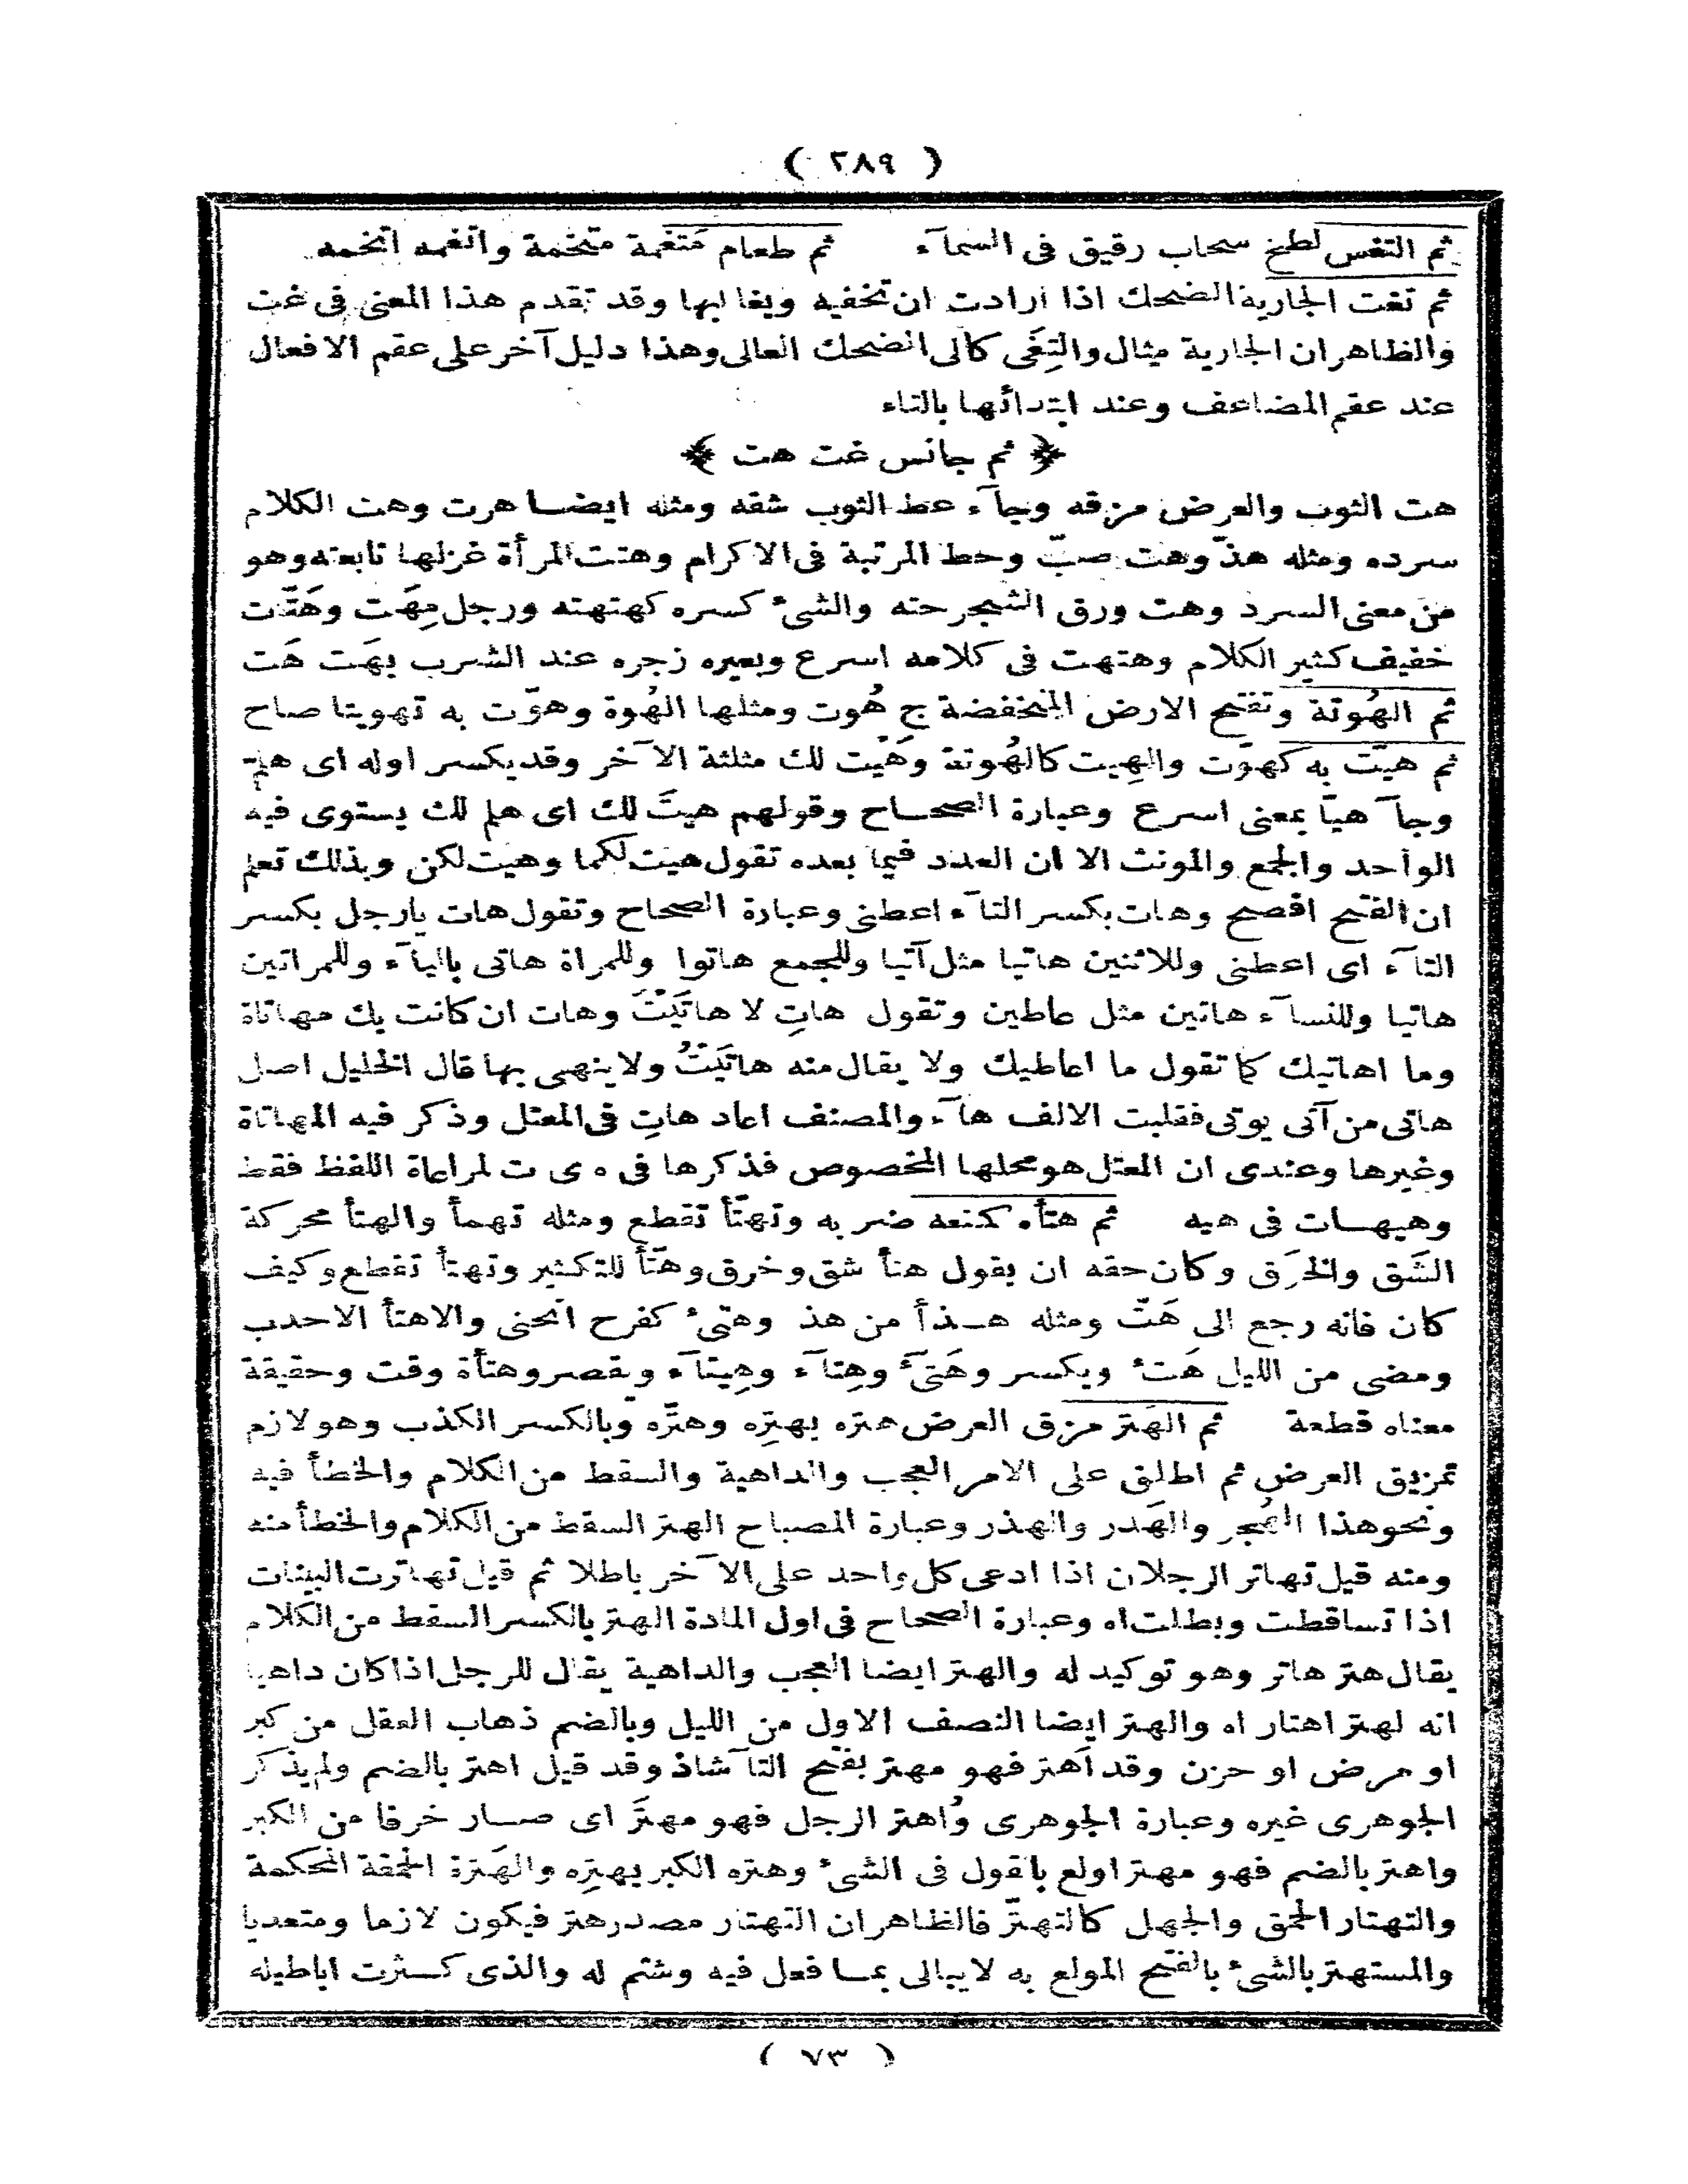 ( ٢٨٩ )
ثم التغس لطخ سحاب رقيق فى السمآء ثم طعام مَتغمة متخمة واتغمه اتخمه
ثم تغت الجارية الضحك اذا ارادت ان تخفيه ويغالبها وقد تقدم هذا المعنى فى غت
والظاهر ان الجارية مثال والتِغَى كالى الضحك العالى وهذا دليل آخر على عقم الافعال
عند عقم المضاعف وعند ابتدائها بالتاء
﴿ ثم جانس غت هت ﴾
هت الثوب والعرض مزقه وجآء عط الثوب شقه ومثله ايضا هرت وهت الكلام
سرده ومثله هذّ وهت صبّ وحط المرتبة فى الاكرام وهتت المرأة غزلها تابعته وهو
من معنى السرد وهت ورق الشجر حته والشىء كسره كهتهته ورجل مِهَت وهَتّات
خفيف كثير الكلام وهتهت فى كلامه اسرع وبعيره زجره عند الشرب بهَت هَت
ثم الهُوتة وتفتح الارض المنخفضة ج هُوت ومثلها الهُوة وهوّت به تهويتا صاح
ثم هيّت به كهوّت والهِيت كالهُوتة وهَيْت لك مثلثة الآخر وقد يكسر اوله اى هلم
وجآ هيآ بمعنى اسرع وعبارة الصحاح وقولهم هيتَ لك اى هلم لك يستوى فيه
الواحد والجمع والمونث الا ان العدد فيما بعده تقول هيت لكما وهيت لكن وبذلك تعلم
ان الفتح افصح وهات بكسر التآء اعطنى وعبارة الصحاح وتقول هات يارجل بكسر
التآء اى اعطنى وللاثنين هاتيا مثل آتيا وللجمع هاتوا وللمراة هاتى باليآء وللمراتين
هاتيا وللنسآء هاتين مثل عاطين وتقول هاتِ لا هاتَيْتَ وهات ان كانت بك مهاتاة
وما اهاتيك كما تقول ما اعاطيك ولا يقال منه هاتَيْتُ ولا ينهى بها قال الخليل اصل
هاتى من آتى يوتى فقلبت الالف هآء والمصنف اعاد هاتِ فى المعتل وذكر فيه المهاتاة
وغيرها وعندى ان المعتل هو محلها المخصوص فذكرها فى ه ى ت لمراعاة اللفظ فقط
وهيهات فى هيه ثم هتأه كمنعه ضربه وتهتّأ تقطع ومثله تهمأ والهتأ محركة
الشَق والخَرق وكان حقه ان يقول هتأ شق وخرق وهتّأ للتكثير وتهتأ تقطع وكيف
كان فانه رجع الى هَتّ ومثله هذأ من هذ وهتىء كفرح انحنى والاهتأ الاحدب
ومضى من الليل هَتء ويكسر وهَتىء وهِتآء وهِيتآء ويقصر وهتأة وقت وحقيقة
معناه قطعة ثم الهَتر مزق العرض هتره يهتِره وهتّره وبالكسر الكذب وهو لازم
تمزيق العرض ثم اطلق على الامر العجب والداهية والسقط من الكلام والخطأ فيه
ونحو هذا الهُجر والهَدر والهذر وعبارة المصباح الهتر السقط من الكلام والخطأ منه
ومنه قيل تهاتر الرجلان اذا ادعى كل واحد على الآخر باطلا ثم قيل تهاترت البينات
اذا تساقطت وبطلت اه وعبارة الصحاح فى اول المادة الهتر بالكسر السقط من الكلام
يقال هتر هاتر وهو توكيد له والهتر ايضا العجب والداهية يقال للرجل اذا كان داهيا
انه لهتر اهتار اه والهتر ايضا النصف الاول من الليل وبالضم ذهاب العقل من كبر
او مرض او حزن وقد اَهتر فهو مهتر بفتح التآ شاذ وقد قيل اهتر بالضم ولم يذكر
الجوهرى غيره وعبارة الجوهرى وُاهتر الرجل فهو مهتَر اى صار خرفا من الكبر
واهتر بالضم فهو مهتر اولع بالقول فى الشىء وهتره الكبر يهتِره والهَترة الحمقة المحكمة
والتهتار الحمق والجهل كالتهتّر فالظاهر ان التهتار مصدر هتر فيكون لازما ومتعديا
والمستهتر بالشىء بالفتح المولع به لا يبالى بما فعل فيه وشتم له والذى كثرت اباطيله
( ٧٣ )